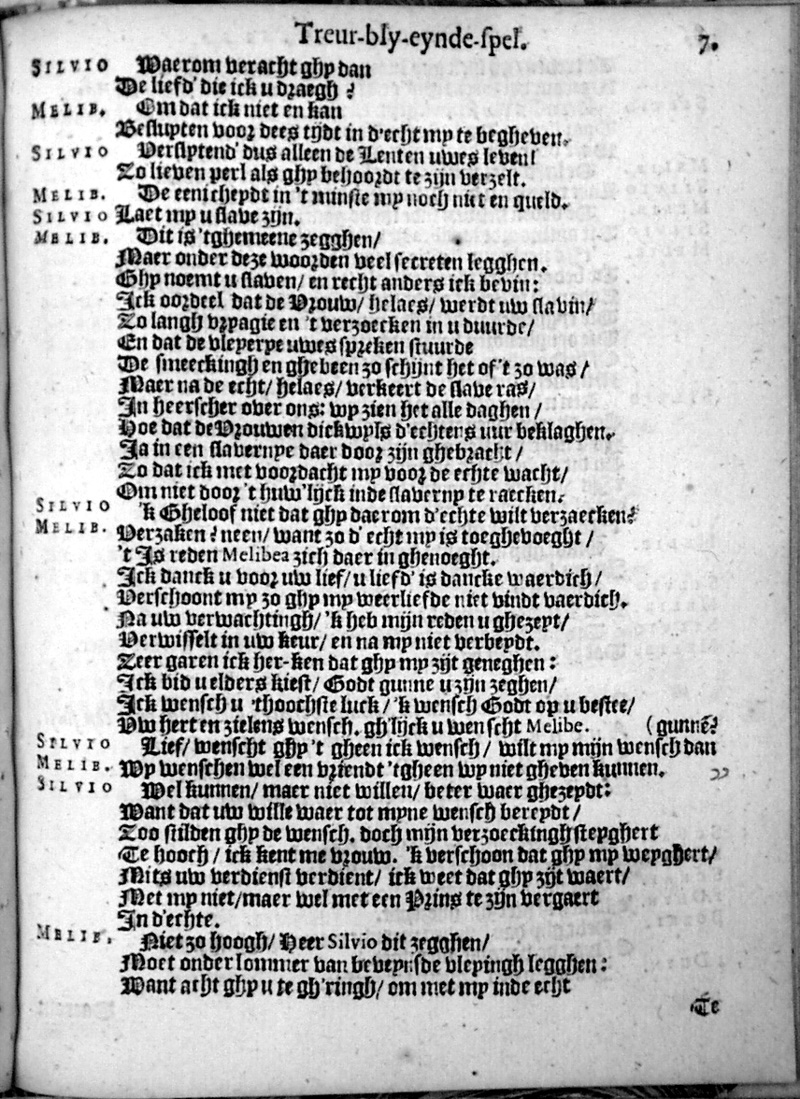 Treur-bly-eynde-spel. 7.
SILVIO Waerom veracht ghy dan
De liefd' die ick u draegh?
MELIB. Om dat ick niet en kan
Besluyten voor dees tijdt in d'echt my te begheven.
SILVIO Verslytend' dus alleen de Lenten uwes leven!
Zo lieven perl als ghy behoordt te zijn verzelt.
MELIB. De eenicheydt in 't minste my noch niet en queld.
SILVIO Laet my u slave zijn.
MELIB. Dit is 'tghemeene zegghen/
Maer onder deze woorden veel secreten legghen.
Ghy noemt u slaven/ en recht anders ick bevin:
Ick oordeel dat de Vrouw/ helaes/ werdt uw slavin/
Zo langh vrpagie en 't verzoecken in u duurde/
En dat de vleyerye uwes spreken stuurde
De smeeckingh en ghebeen zo schijnt het of 't zo was/
Maer na de echt/ helaes/ verkeert de slave ras/
In heerscher over ons: wy zien het alle daghen/
Hoe dat de Vrouwen dickwyls d'echters uur beklaghen.
Ja in een slavernye daer door zijn ghebracht/
Zo dat ick met voordacht my voor de echte wacht/
Om niet door 't huw'lijck inde slaverny te raecken.
SILVIO 'k Gheloof niet dat ghy daerom d'echte wilt verzaecken?
MELIB. Verzaken? neen/ want zo d'echt my is toeghevoeght/
't Is reden Melibea zich daer in ghenoeght.
Ick danck u voor uw lief/ u liefd' is dancke waerdich/
Verschoont my zo ghy my weerliefde niet vindt vaerdich.
Na uw verwachtingh/ 'k heb mijn reden u ghezeyt/
Verwisselt in uw keur/ en na my niet verbeydt.
Zeer garen ick her-ken dat ghy my zijt geneghen:
Ick bid u elders kiest/ Godt gunne u zijn zeghen/
Ick wensch u 'thoochste luck/ 'k wensch Godt op u bestee/
Uw hert en zielens wensch. gh'lijck u wenscht Melibe. (gunnē?
SILVIO Lief/ wenscht ghy 't gheen ick wensch/ wilt my mijn wensch dan
MELIB. Wy wenschen wel een vriendt 'tgheen wy niet gheven kunnen.
SILVIO Wel kunnen/ maer niet willen/ beter waer ghezeydt:
Want dat uw wille waer tot myne wensch bereydt/
Zoo stilden ghy de wensch. doch mijn verzoeckingh steyghert
Te hooch/ ick kent me vrouw. 'k verschoon dat ghy my weyghert/
Mits uw verdienst verdient/ ick weet dat ghy zijt waert/
Met my niet/ maer wel met een Prins te zijn vergaert
In d'echte.
MELIB. Niet zo hoogh/ Heer Silvio dit zegghen/
Moet onder lommer van beveynsde vleyingh legghen:
Want acht ghy u te gh'ringh/ om met my inde echt
Te